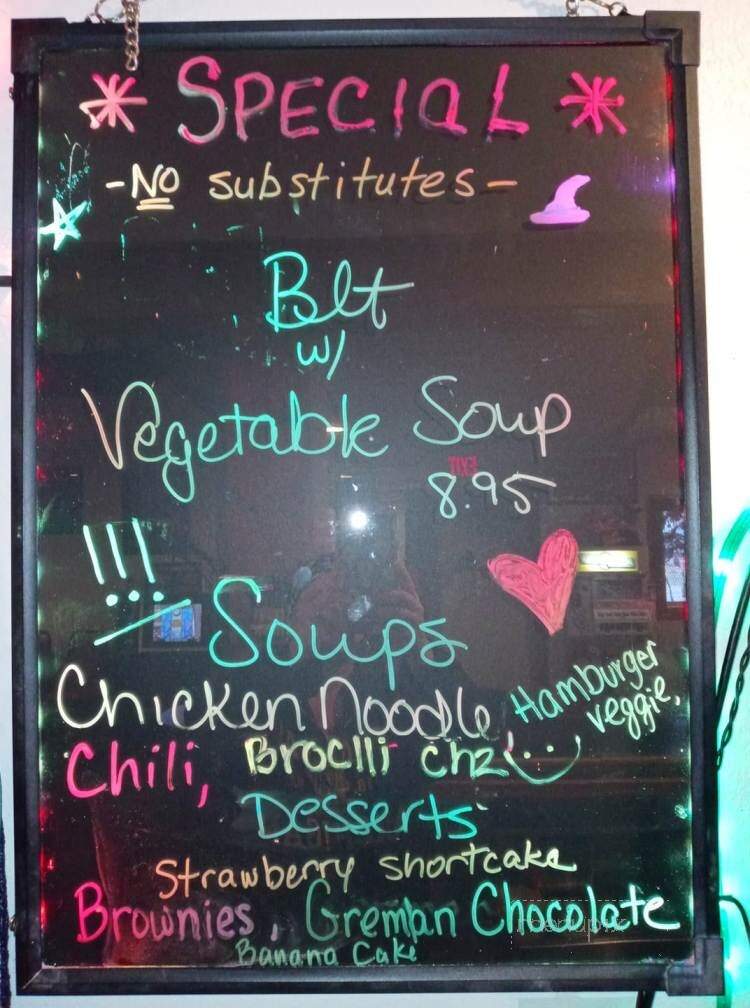 * SPECIAL *
-NO substitutes-
Blt
w/
Vegetable Soup
8.95
!!!
Soups
Chicken Noodle, Hamburger veggie,
Chili, Broclli chz
Desserts
Strawberry shortcake
Brownies, Greman Chocolate
Banana Cake